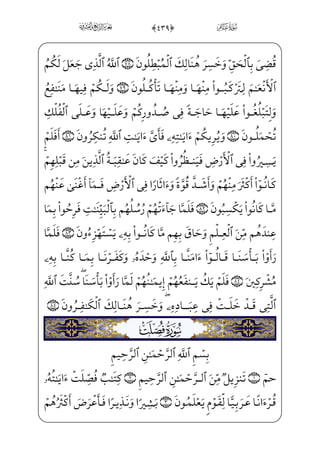 ﴿٤٣٩﴾
قُضِيَ بِٱلْحَقِّ وَخَسِرَ هُنَالِكَ ٱلْمُبْطِلُونَ ۝ ٱللَّهُ ٱلَّذِى جَعَلَ لَكُمُ
ٱلْأَنْعَـٰمَ لِتَرْكَبُوا۟ مِنْهَا وَمِنْهَا تَأْكُلُونَ ۝ وَلَكُمْ فِيهَا مَنَـٰفِعُ
وَلِتَبْلُغُوا۟ عَلَيْهَا حَاجَةً فِى صُدُورِكُمْ وَعَلَيْهَا وَعَلَى ٱلْفُلْكِ
تُحْمَلُونَ ۝ وَيُرِيكُمْ ءَايَـٰتِهِۦ فَأَىَّ ءَايَـٰتِ ٱللَّهِ تُنكِرُونَ ۝ أَفَلَمْ
يَسِيرُوا۟ فِى ٱلْأَرْضِ فَيَنظُرُوا۟ كَيْفَ كَانَ عَـٰقِبَةُ ٱلَّذِينَ مِن قَبْلِهِمْ
كَانُوٓا۟ أَكْثَرَ مِنْهُمْ وَأَشَدَّ قُوَّةً وَءَاثَارًا فِى ٱلْأَرْضِ فَمَآ أَغْنَىٰ عَنْهُم
مَّا كَانُوا۟ يَكْسِبُونَ ۝ فَلَمَّا جَآءَتْهُمْ رُسُلُهُم بِٱلْبَيِّنَـٰتِ فَرِحُوا۟ بِمَا
عِندَهُم مِّنَ ٱلْعِلْمِ وَحَاقَ بِهِم مَّا كَانُوا۟ بِهِۦ يَسْتَهْزِءُونَ ۝ فَلَمَّا
رَأَوْا۟ بَأْسَنَا قَالُوٓا۟ ءَامَنَّا بِٱللَّهِ وَحْدَهُۥ وَكَفَرْنَا بِمَا كُنَّا بِهِۦ
مُشْرِكِينَ ۝ فَلَمْ يَكُ يَنفَعُهُمْ إِيمَـٰنُهُمْ لَمَّا رَأَوْا۟ بَأْسَنَا ۖ سُنَّتَ ٱللَّهِ
ٱلَّتِى قَدْ خَلَتْ فِى عِبَادِهِۦ ۖ وَخَسِرَ هُنَالِكَ ٱلْكَـٰفِرُونَ ۝
سُورَةُ فُصِّلَتْ
بِسْمِ ٱللَّهِ ٱلرَّحْمَـٰنِ ٱلرَّحِيمِ
حمٓ ۝ تَنزِيلٌ مِّنَ ٱلرَّحْمَـٰنِ ٱلرَّحِيمِ ۝ كِتَـٰبٌ فُصِّلَتْ ءَايَـٰتُهُۥ
قُرْءَانًا عَرَبِيًّا لِّقَوْمٍ يَعْلَمُونَ ۝ بَشِيرًا وَنَذِيرًا فَأَعْرَضَ أَكْثَرُهُمْ